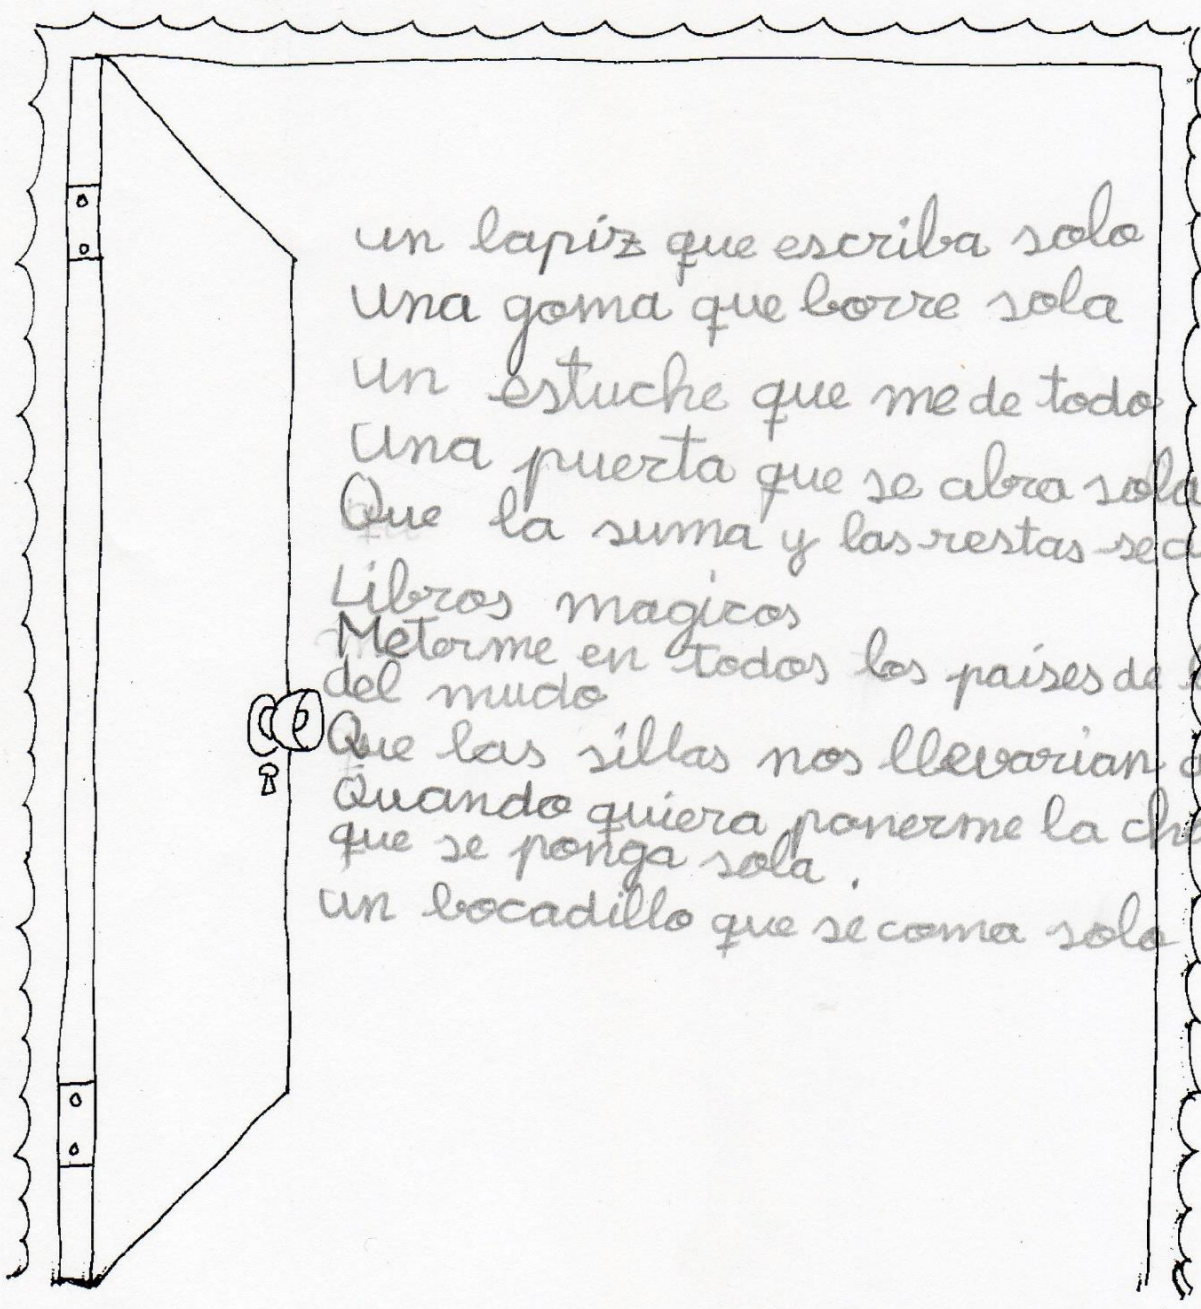 un lapiz que escriba solo
una goma que borre sola
un estuche que me de todo
Una puerta que se abra sola
Que la suma y las restas
Libros magicos
Meterme en todos los países de
del mudo
Que las sillas nos llevarian
Quando quiera ponerme la
que se ponga sola.
un bocadillo que se coma solo